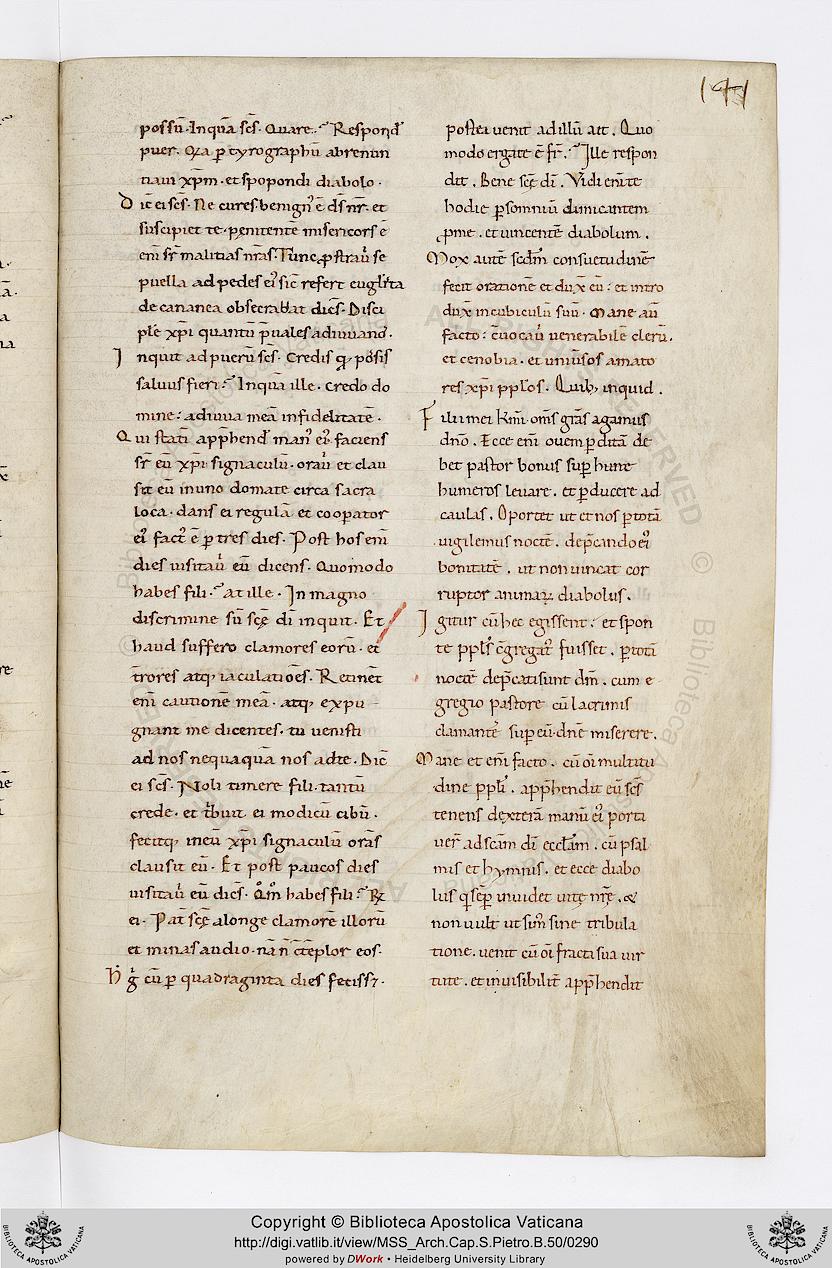 141
possū. Inquā scs̄. Quare. Respond̄
puer. Q̄a p̱ cyrographū abrenun
tiaui xp̄m. et spopondi diabolo.
Dic̄ ei scs̄. Ne cures. benign' ē ds̄ nr̄. et
suscipiet te. penitentē misericors ē
eni sr̄ malitias nr̄as. Tunc ꝓstrau̅ se
puella ad pedes ei' sic refert euglīsta
de cananea obsecrabat dicēs. Disci
ple xp̄i quantū p̄uales adiuuanos.
Inquit ad puerū scs̄. Credis ꝙ possis
saluus fieri. Inquā ille. Credo do
mine: adiuua meā infidelitatē.
Qui statī app̄hend̄ man' ei'. faciens
sr̄ eū xp̄i signaculū. orau̅ et clau
sit eū in uno domate circa sacra
loca. dans ei regulā et coopator
ei' fact' ē p̱ tres dies. Post hos eni
dies uisitau̅ eū dicens. Quomodo
habes fili. at ille. In magno
discrimine sū scē di inquit. Et
haud suffero clamores eorū. et
tr̄ores atq; iaculatiões. Retinēt
eni cautionē meā. atq; expu
gnant me dicentes. tu uenisti
ad nos nequaquā nos ad te. Dic̄
ei scs̄. Noli timere fili. tantū
crede. et t̄buit ei modicū cibū.
fecitq; in eū xp̄i signaculū orās
clausit eū. Et post paucos dies
uisitau̅ eū dicēs. Qm̄ habes fili. R̄
ei. Pat̄ scē a longe clamorē illorū
et minas audio. nā n̄ c̄tēplor eos.
H' g̊ cū p̱ quadraginta dies fecissꝫ.
postea uenit ad illū ait. Quo
modo erga te ē fr̄. Ille respon
dit. Bene scē di. Vidi eni te
hodie p̱ somniū dimicantem
ꝓ me. et uincentē diabolum.
Mox autē scdm̄ consuetudinē
fecit orationē et dux̄ eū: et intro
dux̄ in cubiculū suū. Mane au̅
facto: c̄uocau̅ uenerabilē clerū.
et cenobia. et uniūsos amato
res xp̄i pplos. Quib; inquid.
Filii mei kmī. oms̄ grās agamus
dn̄o. Ecce eni ouem p̱ditā de
bet pastor bonus sup̱ hune
humeros leuare. et p̱ducere ad
caulas. Oportet ut et nos p̱ totā
uigilemus noctē. dep̄cando ei'
bonitatē. ut non uincat cor
ruptor animaꝝ diabolus.
Igitur cū hec egissent: et spon
te ppls̄ c̄gregat' fuisset. p̱ totā
noctē dep̄cati sunt dm̄. cum e
gregio pastore cū lacrimis
clamantē sup̱ eū. dn̄e miserere.
Mane et eni facto. cū oi multitu
dine ppli. app̄hendit eū scs̄
tenens dexterā manū ei' porti
uer̄ ad scam̄ di eccl̄am. cū psal
mis et hymnis. et ecce diabo
lus q̄ semp̱ inuidet uitę nrē. &
non uult ut sim' sine tribula
tione. uenit cū oi fracti sua uir
tute. et inuisibilit̄ app̄hendit
Copyright © Biblioteca Apostolica Vaticana
http://digi.vatlib.it/view/MSS_Arch.Cap.S.Pietro.B.50/0290
powered by DWork • Heidelberg University Library